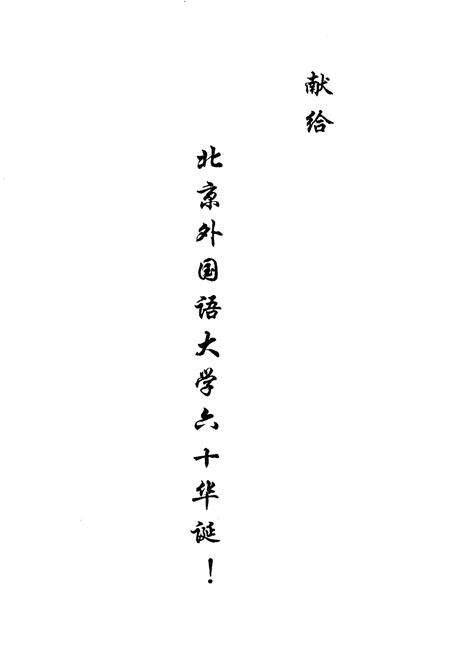 献给
北京外国语大学六十华诞！